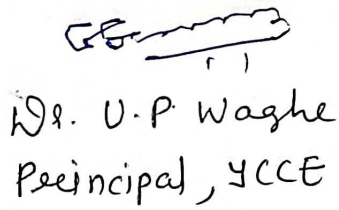 Dr. U.P. Waghe
Principal, YCCE